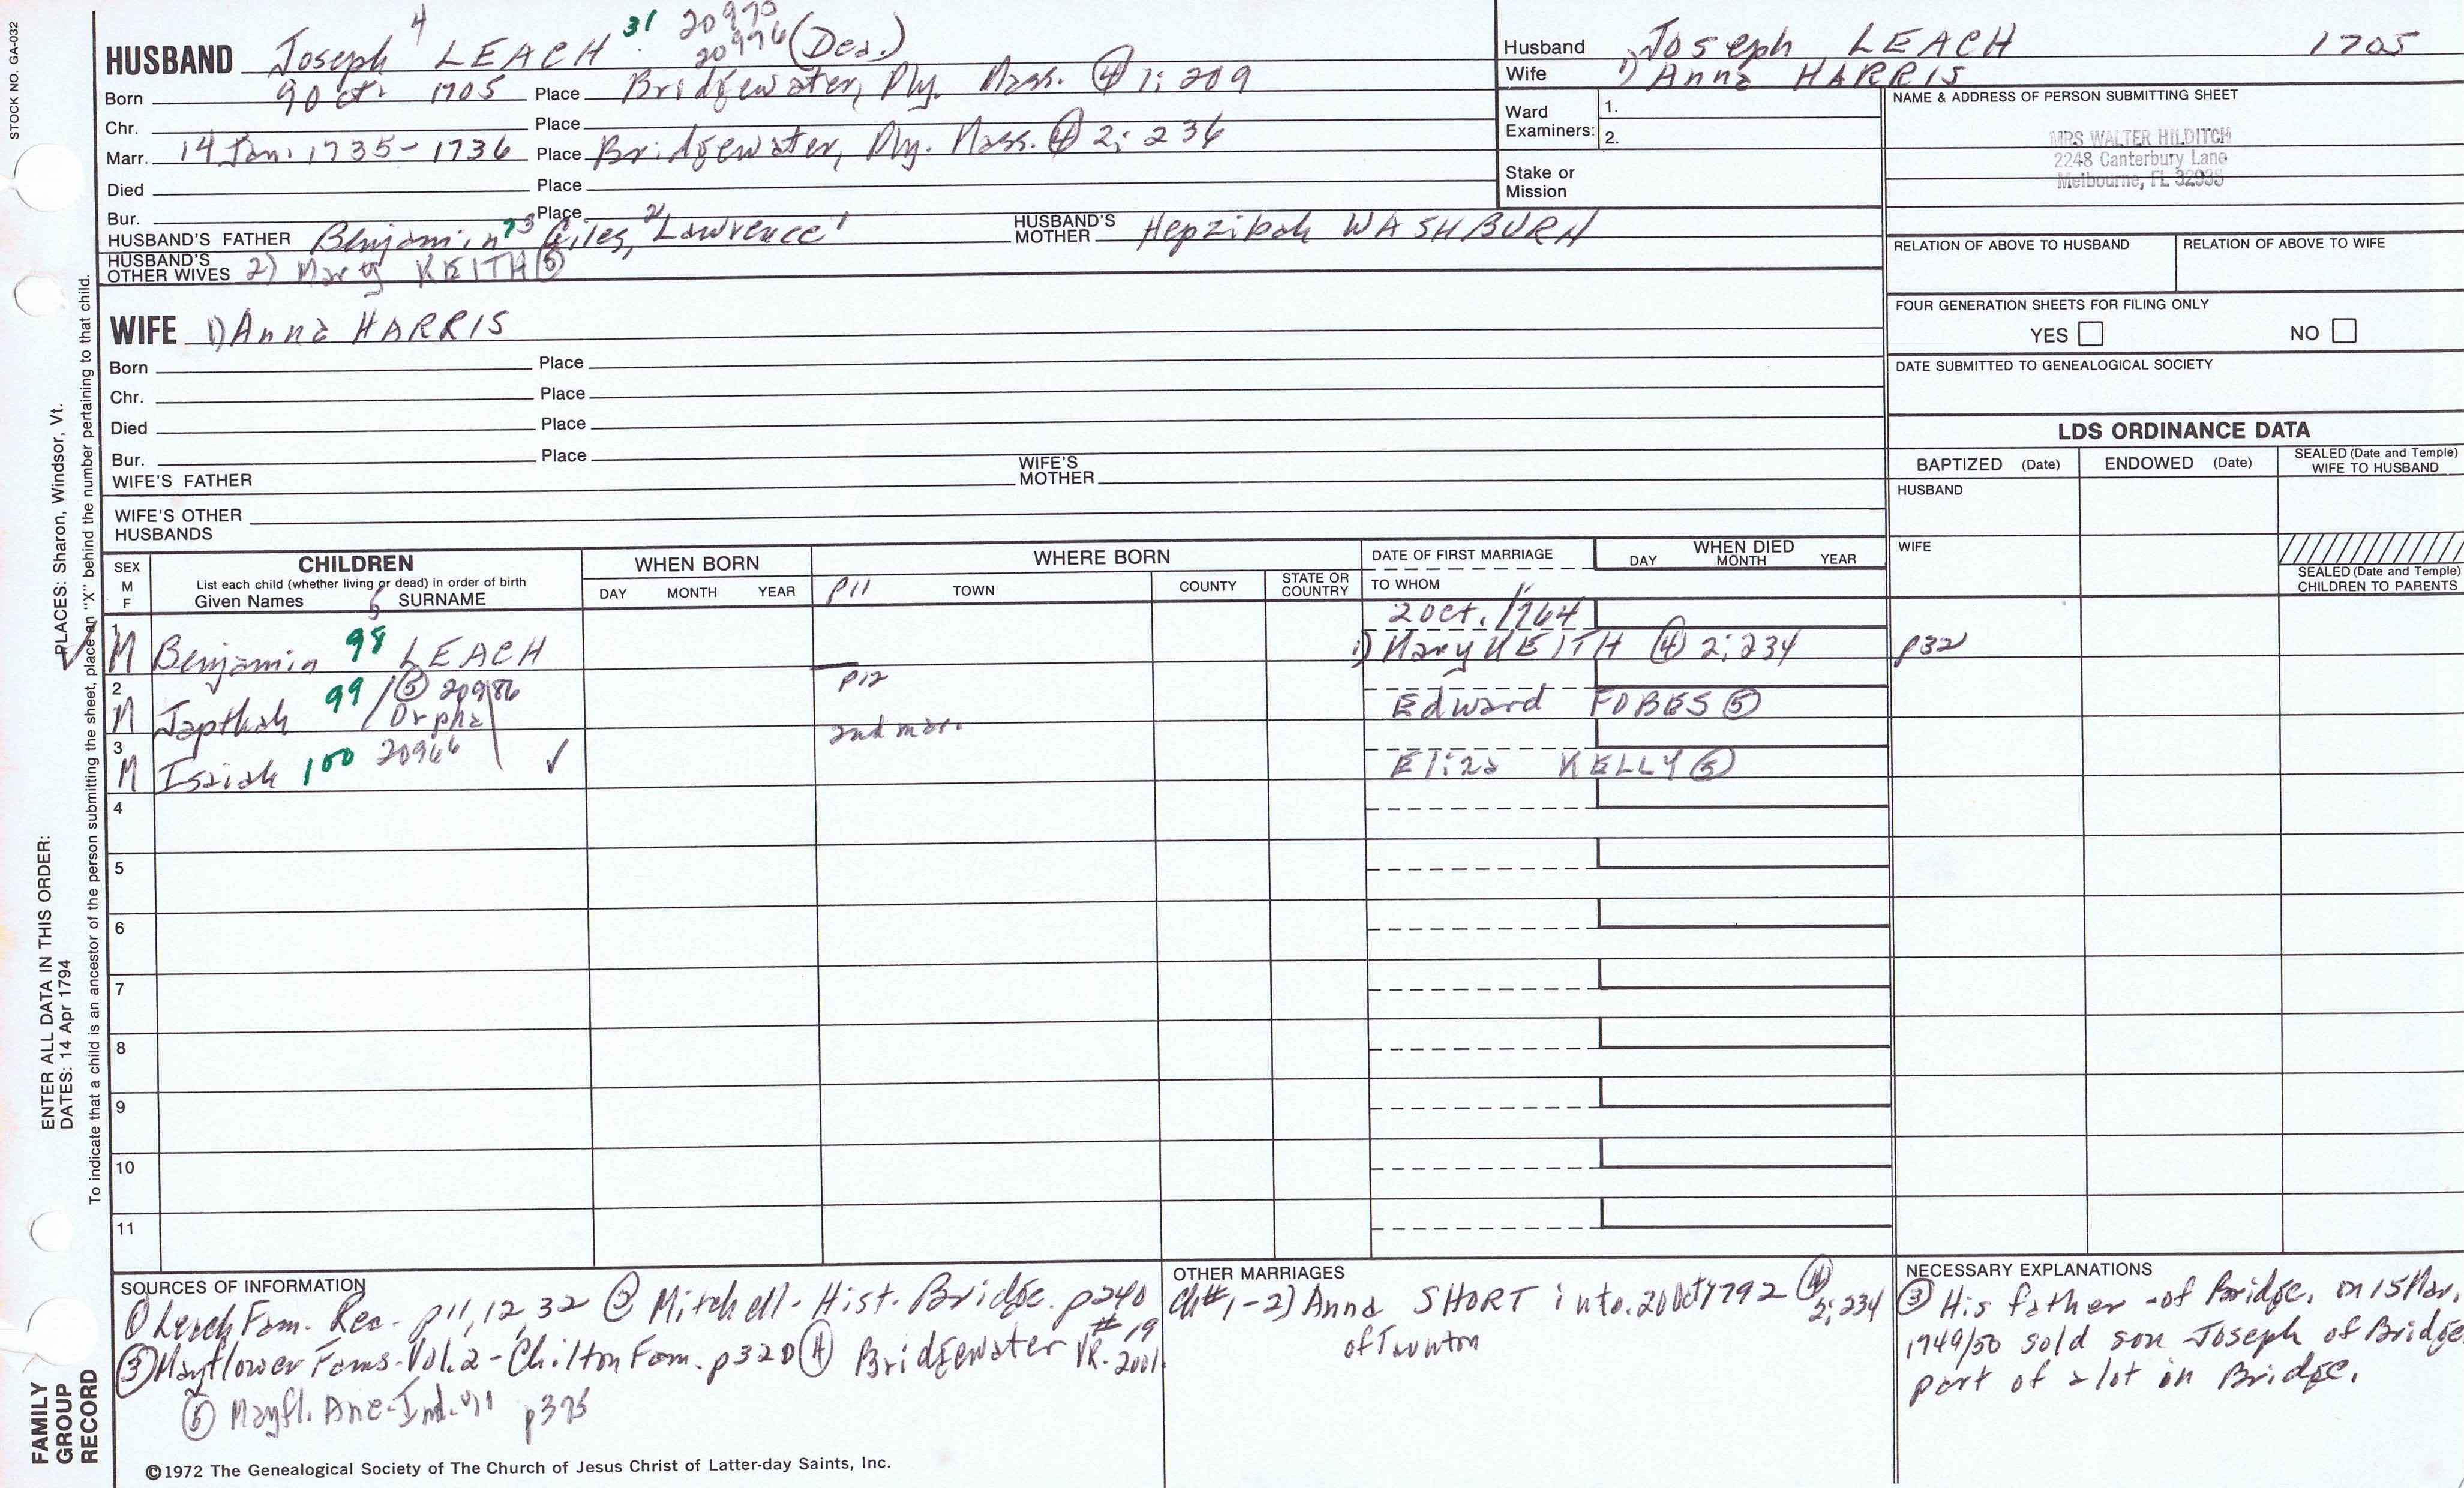 STOCK NO. GA-032
HUSBAND Joseph 4 LEACH 31 20975 20976 (Dea.)
Born 9 Oct. 1705 Place Bridgewater, Ply. Mass. ④ 1:209
Chr. Place
Marr. 14 Jan. 1735-1736 Place Bridgewater, Ply. Mass. ④ 2:236
Died Place
Bur. Place
HUSBAND'S FATHER Benjamin 3 Giles, 2 Lawrence 1 HUSBAND'S MOTHER Hepzibah WASHBURN
HUSBAND'S OTHER WIVES 2) Mary KEITH ⑤
Husband Joseph LEACH 1705
Wife 1) Anna HARRIS
Ward Examiners: 1.
2.
Stake or Mission
NAME & ADDRESS OF PERSON SUBMITTING SHEET
MRS WALTER HILDITCH
2248 Canterbury Lane
Melbourne, FL 32935
RELATION OF ABOVE TO HUSBAND RELATION OF ABOVE TO WIFE
FOUR GENERATION SHEETS FOR FILING ONLY
YES NO
DATE SUBMITTED TO GENEALOGICAL SOCIETY
WIFE 1) Anna HARRIS
Born Place
Chr. Place
Died Place
Bur. Place
WIFE'S FATHER WIFE'S MOTHER
WIFE'S OTHER HUSBANDS
LDS ORDINANCE DATA
BAPTIZED (Date) ENDOWED (Date) SEALED (Date and Temple) WIFE TO HUSBAND
HUSBAND
WIFE
SEALED (Date and Temple) CHILDREN TO PARENTS
SEX M F
CHILDREN
List each child (whether living or dead) in order of birth
Given Names SURNAME
WHEN BORN
DAY MONTH YEAR
WHERE BORN
p11 TOWN COUNTY STATE OR COUNTRY
DATE OF FIRST MARRIAGE
TO WHOM
WHEN DIED
DAY MONTH YEAR
1 M Benjamin 98 5 LEACH 2 Oct. 1764
1) Mary KEITH ④ 2:234 p32
2 M Japthah 99 / ⑤ 20986 Orpha p12 Edward FOBES ⑤
3 M Isaiah 100 20966 ✓ 2nd marr. Eliza KELLY ⑤
4
5
6
7
8
9
10
11
SOURCES OF INFORMATION
① Leach Fam. Rec. p11,12,32 ② Mitchell-Hist. Bridge. p240 #19
③ Mayflower Fams-Vol.2-Chilton Fam. p320 ④ Bridgewater VR-2vol.
⑤ Mayfl. Anc-Ind. p375
OTHER MARRIAGES
Ch#1-2) Anna SHORT int. 20 Oct 1792 ④ 2:234
of Taunton
NECESSARY EXPLANATIONS
③ His father-of Bridge. on 15 Mar.
1749/50 sold son Joseph of Bridge
part of a lot in Bridge.
©1972 The Genealogical Society of The Church of Jesus Christ of Latter-day Saints, Inc.
FAMILY
GROUP
RECORD
ENTER ALL DATA IN THIS ORDER:
DATES: 14 Apr 1794
PLACES: Sharon, Windsor, Vt.
To indicate that a child is an ancestor of the person submitting the sheet, place an "X" behind the number pertaining to that child.